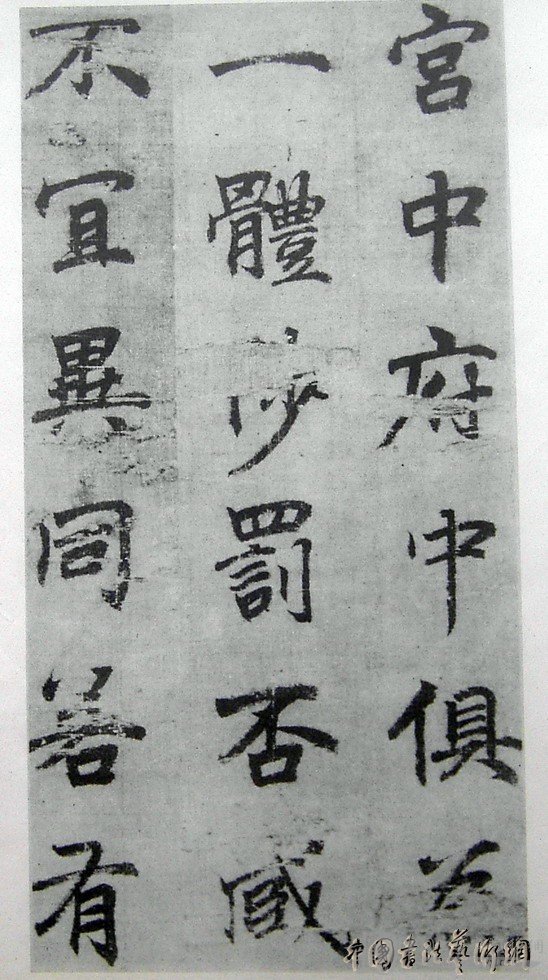 宮中府中俱為
一體陟罰否臧
不宜異同若有
中國書法藝術網